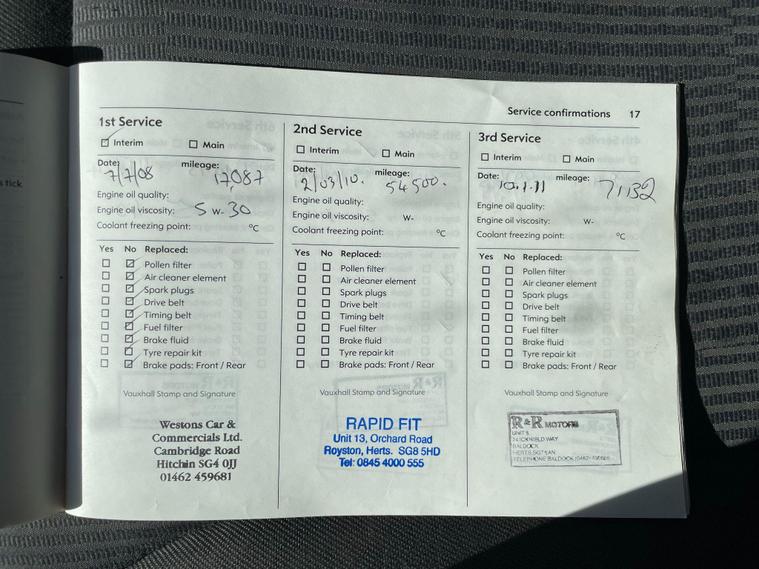 Service confirmations 17
s tick
1st Service
Interim Main
Date: 7/7/08 mileage: 17,087
Engine oil quality:
Engine oil viscosity: 5 W- 30
Coolant freezing point: °C
Yes No Replaced:
Pollen filter
Air cleaner element
Spark plugs
Drive belt
Timing belt
Fuel filter
Brake fluid
Tyre repair kit
Brake pads: Front / Rear
Vauxhall Stamp and Signature
Westons Car &
Commercials Ltd.
Cambridge Road
Hitchin SG4 0JJ
01462 459681
2nd Service
Interim Main
Date: 2/03/10. mileage: 54500.
Engine oil quality:
Engine oil viscosity: W-
Coolant freezing point: °C
Yes No Replaced:
Pollen filter
Air cleaner element
Spark plugs
Drive belt
Timing belt
Fuel filter
Brake fluid
Tyre repair kit
Brake pads: Front / Rear
Vauxhall Stamp and Signature
RAPID FIT
Unit 13, Orchard Road
Royston, Herts. SG8 5HD
Tel: 0845 4000 555
3rd Service
Interim Main
Date: 10.1.11 mileage: 71132
Engine oil quality:
Engine oil viscosity: W-
Coolant freezing point: °C
Yes No Replaced:
Pollen filter
Air cleaner element
Spark plugs
Drive belt
Timing belt
Fuel filter
Brake fluid
Tyre repair kit
Brake pads: Front / Rear
Vauxhall Stamp and Signature
R&R MOTORS
WAY
BALDOCK
HERTS
TELEPHONE BALDOCK